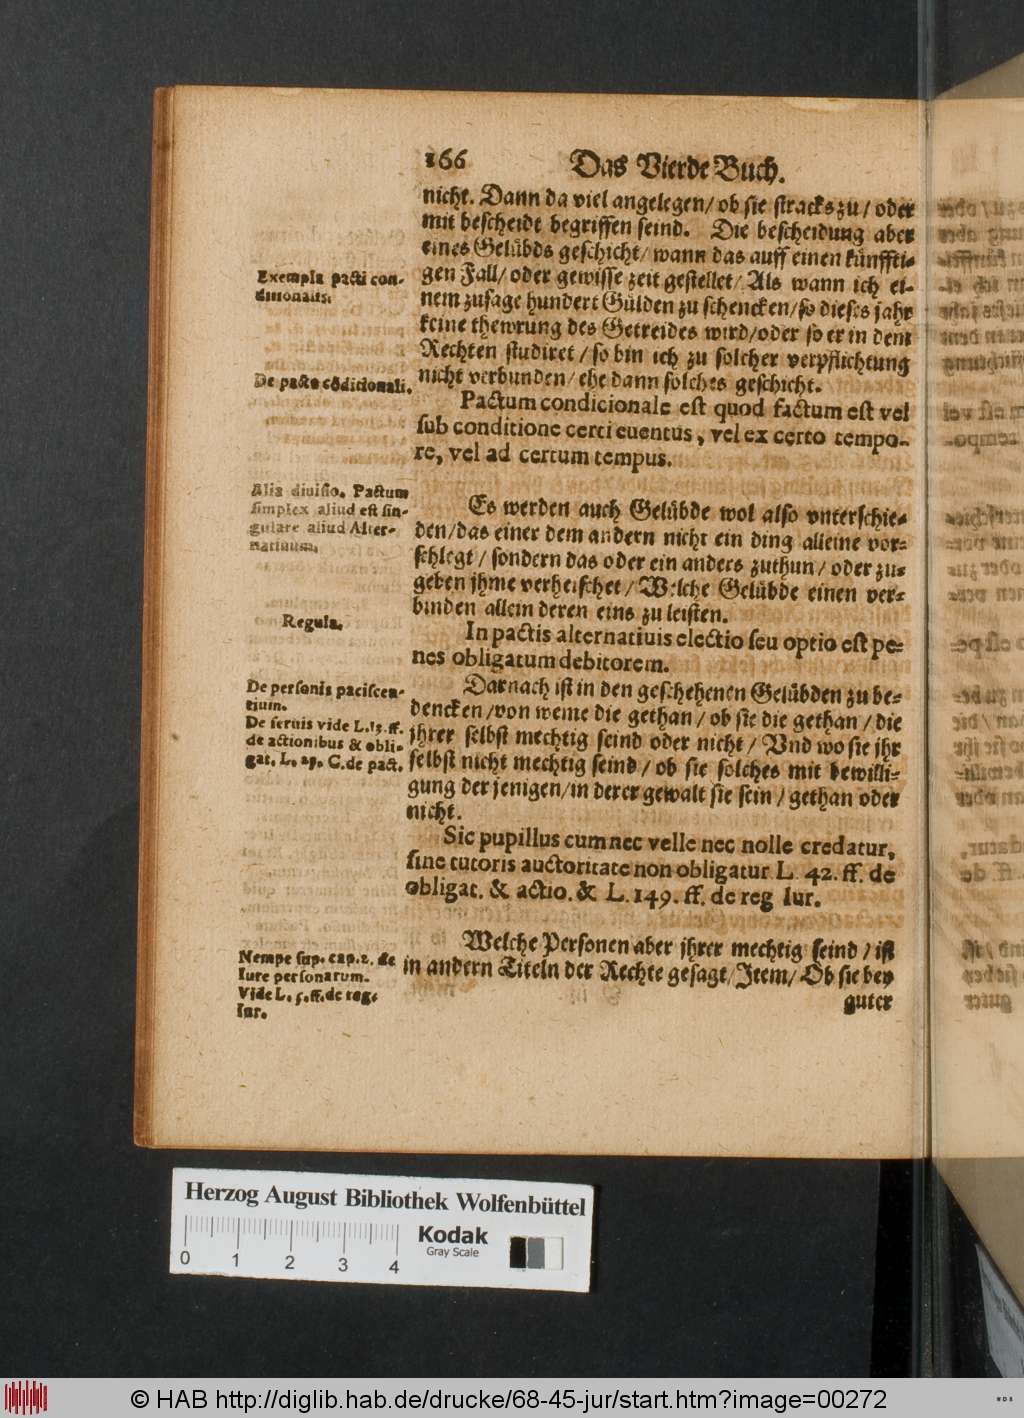 166 Das Vierde Buch.
nicht. Dann da viel angelegen/ ob sie stracks zu/ oder
mit bescheidt begriffen seind. Die bescheidung aber
eines Gelübds geschicht/ wann das auff einen künffti-
gen Fall/ oder gewisse zeit gestellet/ Als wann ich ei-
nem zusage hundert Gülden zu schencken/ so dieses jahr
keine thewrung des Getreides wird/ oder so er in dem
Rechten studiret/ so bin ich zu solcher verpflichtung
nicht verbunden/ ehe dann solches geschicht.
Exempla pacti con-
ditionalis.
De pacto cõdicionali.
Pactum condicionale est quod factum est vel
sub conditione certi euentus, vel ex certo tempo-
re, vel ad certum tempus.
Alia diuisio. Pactum
simplex aliud est sin-
gulare aliud Alter-
natiuum.
Es werden auch Gelübde wol also vnterschie-
den/ das einer dem andern nicht ein ding alleine vor-
schlegt/ sondern das oder ein anders zuthun/ oder zu-
geben jhme verheischet/ Welche Gelübde einen ver-
binden allein deren eins zu leisten.
Regula.
In pactis alternatiuis electio seu optio est pe-
nes obligatum debitorem.
De personis paciscen-
tium.
De seruis vide L. 13. ff.
de actionibus & obli-
gat. L. 27. C. de pact.
Darnach ist in den geschehenen Gelübden zu be-
dencken/ von weme die gethan/ ob sie die gethan/ die
jhrer selbst mechtig seind oder nicht/ Vnd wo sie jhr
selbst nicht mechtig seind/ ob sie solches mit bewilli-
gung der jenigen/ in derer gewalt sie sein/ gethan oder
nicht.
Sic pupillus cum nec velle nec nolle credatur,
sine tutoris auctoritate non obligatur L. 42. ff. de
obligat. & actio. & L. 149. ff. de reg Iur.
Nempe sup. cap. 2. de
Iure personarum.
Vide L. 5. ff. de reg.
Iur.
Welche Personen aber jhrer mechtig seind/ ist
in andern Titeln der Rechte gesagt/ Item/ Ob sie bey
guter
Herzog August Bibliothek Wolfenbüttel
0 1 2 3 4
Kodak
Gray Scale
© HAB http://diglib.hab.de/drucke/68-45-jur/start.htm?image=00272